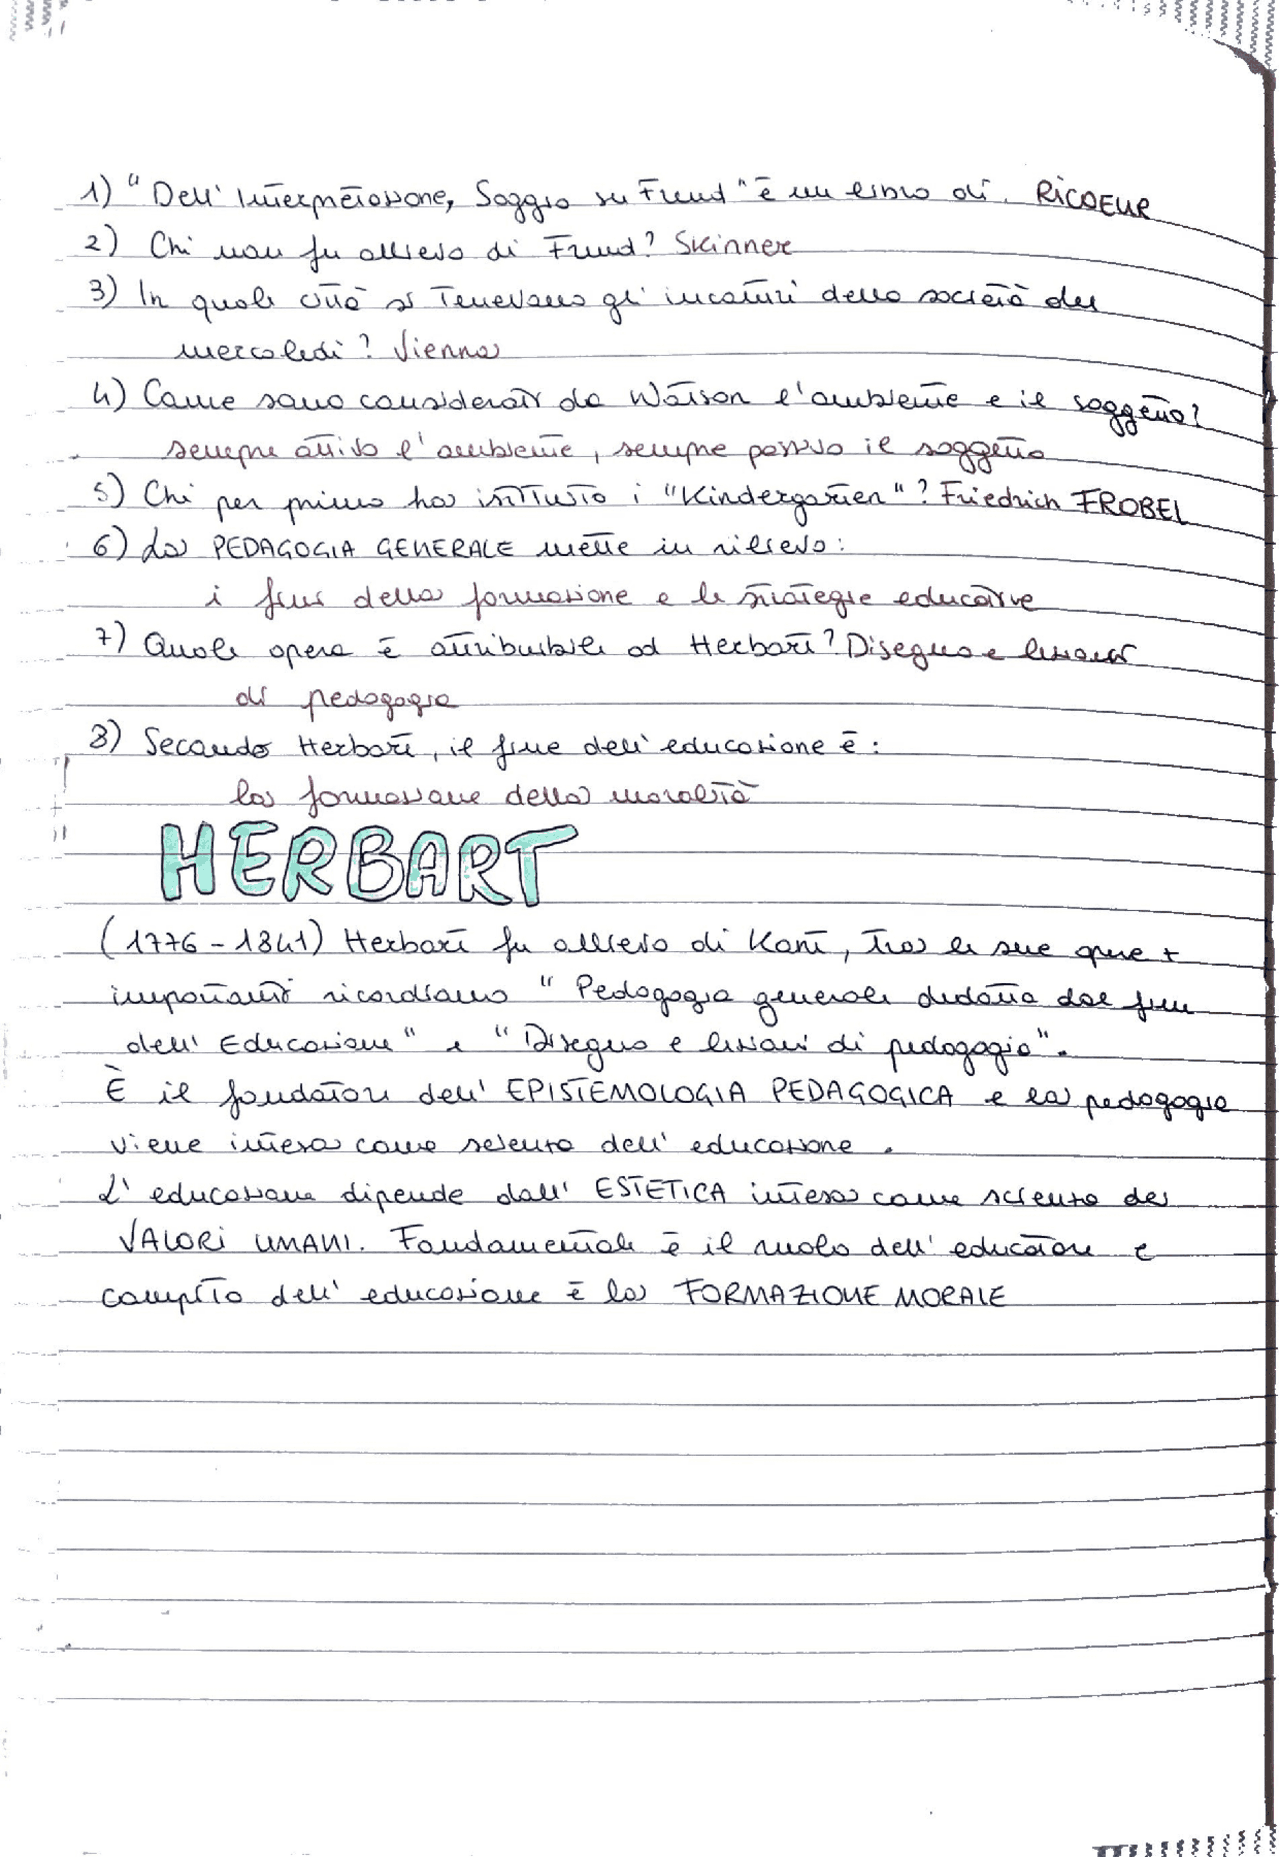 1) "Dell'Interpretazione, Saggio su Freud" è un libro di. RICOEUR
2) Chi non fu allievo di Freud? Skinner
3) In quale città si tenevano gl'incontri della società del
mercoledì? Vienna
4) Come sono considerati da Watson l'ambiente e il soggetto?
sempre attivo l'ambiente, sempre passivo il soggetto
5) Chi per primo ha istituito i "Kindergarten"? Friedrich FROBEL
6) La PEDAGOGIA GENERALE mette in rilievo:
i fini della formazione e le strategie educative
7) Quale opera è attribuibile ad Herbart? Disegno e lezioni
di pedagogia
8) Secondo Herbart, il fine dell'educazione è:
la formazione della moralità
HERBART
(1776-1841) Herbart fu allievo di Kant, tra le sue opere +
importanti ricordiamo "Pedagogia generale dedotta dal fine
dell'Educazione" e "Disegno e lezioni di pedagogia".
È il fondatore dell'EPISTEMOLOGIA PEDAGOGICA e la pedagogia
viene intesa come scienza dell'educazione.
L'educazione dipende dall'ESTETICA intesa come scienza dei
VALORI UMANI. Fondamentale è il ruolo dell'educatore e
compito dell'educazione è la FORMAZIONE MORALE